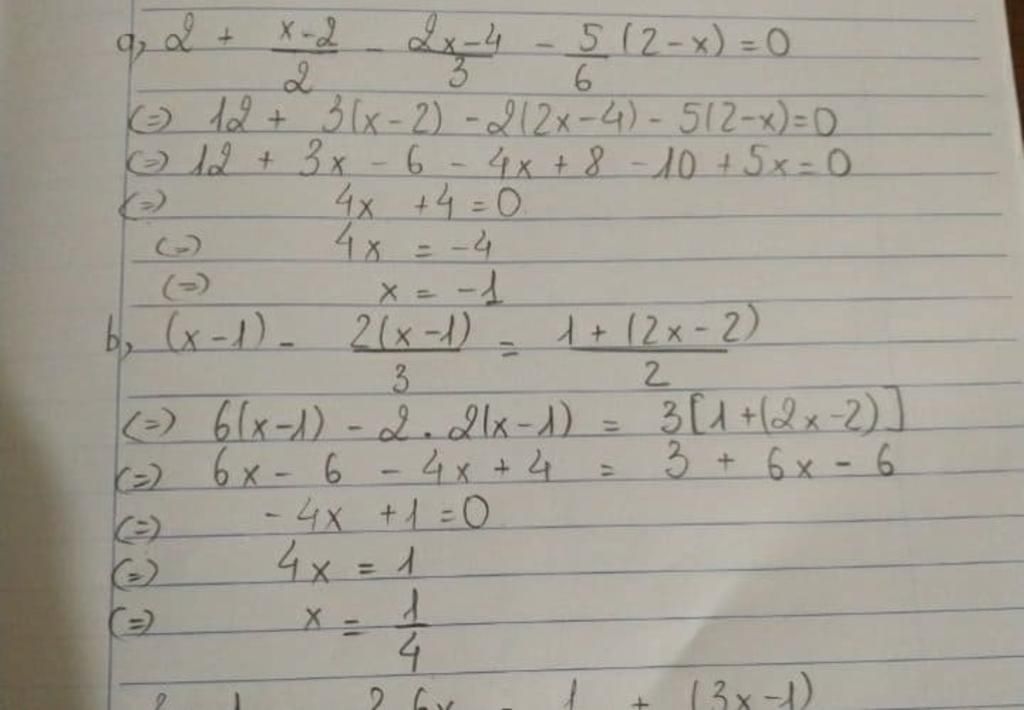 a, 2 + (x-2)/2 - (2x-4)/3 - 5/6 (2-x) = 0
(=) 12 + 3(x-2) - 2(2x-4) - 5(2-x) = 0
(=) 12 + 3x - 6 - 4x + 8 - 10 + 5x = 0
(=) 4x + 4 = 0
(=) 4x = -4
(=) x = -1
b, (x-1) - 2(x-1)/3 = (1+(2x-2))/2
(=) 6(x-1) - 2.2(x-1) = 3[1+(2x-2)]
(=) 6x - 6 - 4x + 4 = 3 + 6x - 6
(=) -4x + 1 = 0
(=) 4x = 1
(=) x = 1/4
1 + (3x-1)